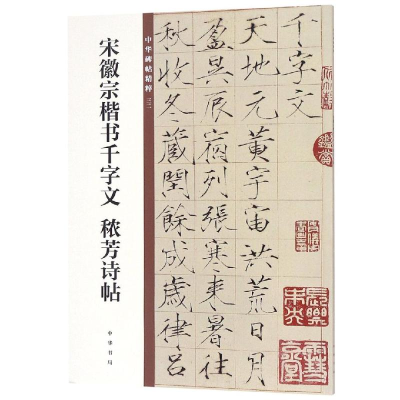 宋徽宗楷书千字文 秾芳诗帖
中华书局
中华碑帖精粹
千字文
天地元黄宇宙洪荒日月
盈昃辰宿列張寒来暑往
秋收冬藏閏餘成歲律呂